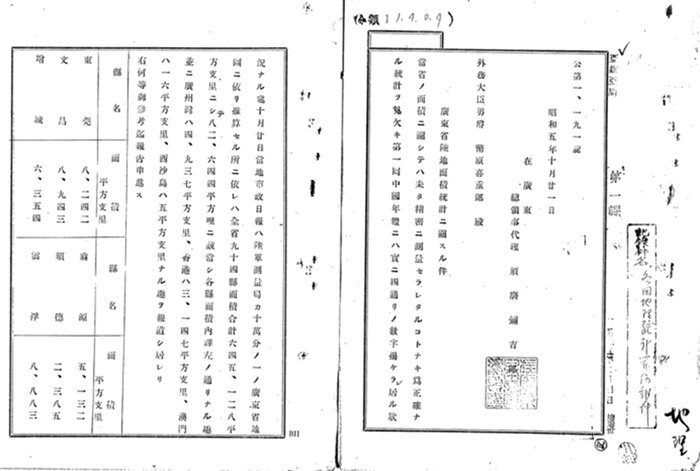 (分類 I 1.4.0.9)
公第一、一九一號
昭和五年十月廿一日
在廣東
總領事代理 須磨彌吉
外務大臣男爵 幣原喜重郎 殿
廣東省陸地面積統計ニ關スル件
當省ノ面積ニ關シテハ未タ精密ニ測量セラレタルコトナキ爲正確ナ
ル統計ヲ見欠キ第一回中國年鑑ニハ實ニ四通リノ數字揭ケラレ居ル狀
況ナル處十月廿日當地市政日報ハ陸軍測量局カ十萬分ノ一ノ廣東省地
圖ニ依リ推算セル所ニ依レハ全省九十四縣面積合計六四五、一二八平
方支里ニシテ八二、六四四平方哩ニ該當シ各縣面積內譯左ノ通リナル趣
並ニ廣州灣ハ四、九三七平方支里、香港ハ三、一四七平方支里、澳門
ハ一六平方支里、西沙島ハ五平方支里ナル趣ヲ報道シ居レリ
右何等御參考迄報告申進ス
縣名 面積平方支里 縣名 面積平方支里
東莞 八、二四二 源 五、一三二
文昌 八、九四三 順德 二、三八五
增城 六、三五四 雲浮 八、八八三
第一課
地理
BII